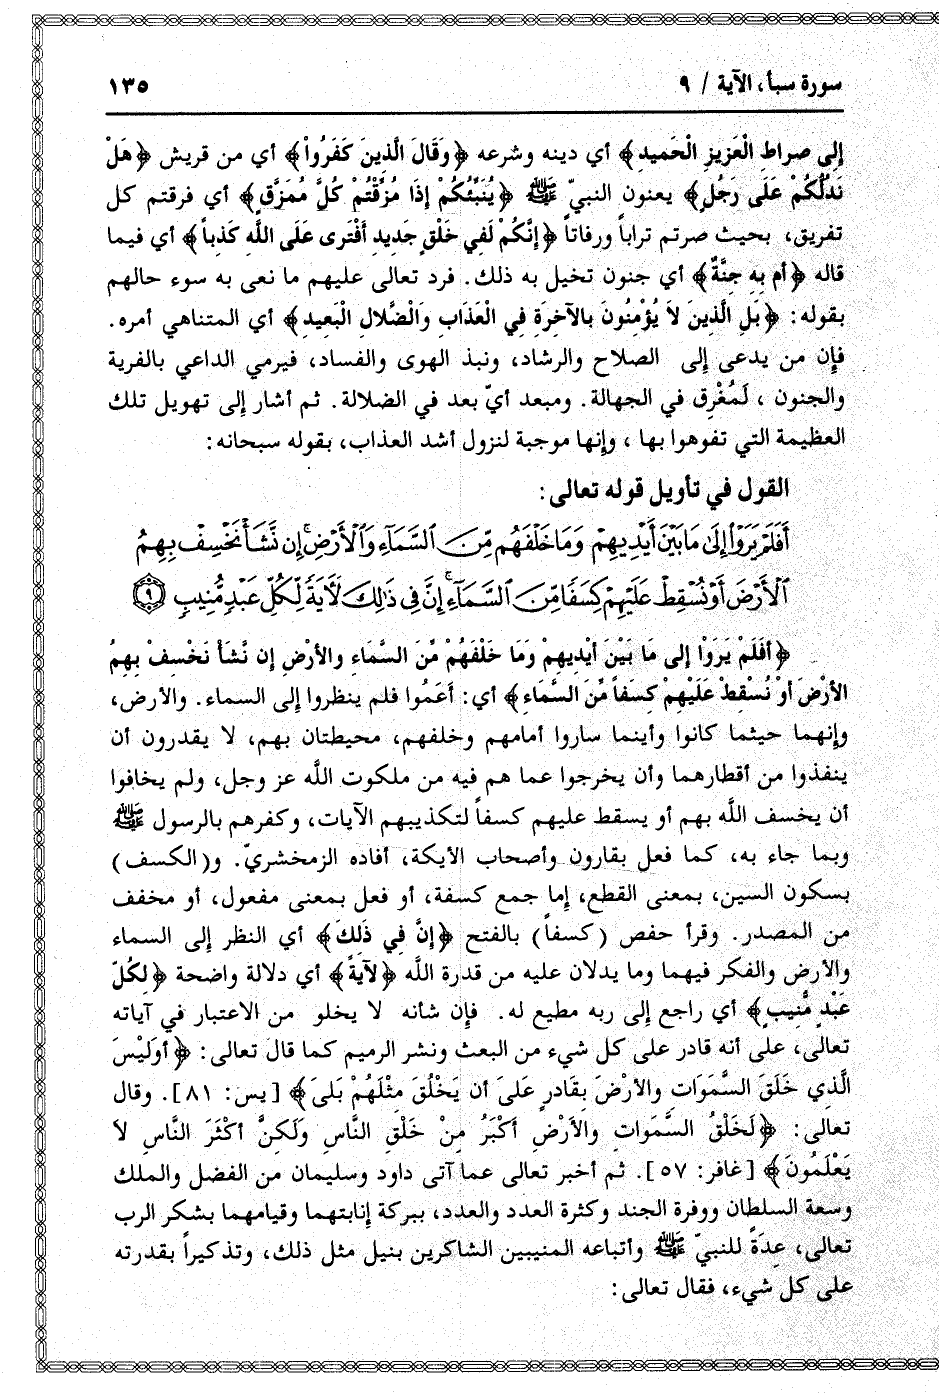 سورة سبأ، الآية / ٩
١٣٥
إِلى صراطِ الْعَزِيزِ الْحَميدِ﴾ أي دينه وشرعه ﴿وَقَالَ الَّذِينَ كَفَرُواْ﴾ أي من قريش ﴿هَلْ
نَدُلُّكُمْ عَلَى رَجُلٍ﴾ يعنون النبيّ ﷺ ﴿يُنَبِّئُكُمْ إِذَا مُزِّقْتُمْ كُلَّ مُمَزَّقٍ﴾ أي فرقتم كل
تفريق، بحيث صرتم تراباً ورفاتاً ﴿إِنَّكُمْ لَفِي خَلْقٍ جَدِيدٍ أَفْتَرى عَلَى اللَّه كَذِباً﴾ أي فيما
قاله ﴿أم بِهِ جِنَّةٌ﴾ أي جنون تخيل به ذلك. فرد تعالى عليهم ما نعى به سوء حالهم
بقوله: ﴿بَلِ الَّذِينَ لاَ يُؤْمِنُونَ بِالآخِرَةِ فِي الْعَذَابِ والضَّلالِ الْبَعِيدِ﴾ أي المتناهي أمره.
فإِن من يدعى إِلى الصلاح والرشاد، ونبذ الهوى والفساد، فيرمي الداعي بالفرية
والجنون ، لَمُغْرِق في الجهالة. ومبعد أيّ بعد في الضلالة. ثم أشار إِلى تهويل تلك
العظيمة التي تفوهوا بها ، وإِنها موجبة لنزول أشد العذاب، بقوله سبحانه:
القول في تأويل قوله تعالى:
أَفَلَمْ يَرَوْا۟ إِلَىٰ مَا بَيْنَ أَيْدِيهِمْ وَمَا خَلْفَهُم مِّنَ ٱلسَّمَآءِ وَٱلْأَرْضِ ۚ إِن نَّشَأْ نَخْسِفْ بِهِمُ
ٱلْأَرْضَ أَوْ نُسْقِطْ عَلَيْهِمْ كِسَفًا مِّنَ ٱلسَّمَآءِ ۚ إِنَّ فِى ذَٰلِكَ لَـَٔايَةً لِّكُلِّ عَبْدٍ مُّنِيبٍ ٩
﴿أَفَلَمْ يَرَوْا إِلى مَا بَيْنَ أَيْدِيهِمْ وَمَا خَلْفَهُمْ مِّنَ السَّمَاءِ والأَرْضِ إِن نَّشأْ نَخْسِفْ بِهِمُ
الأرْضَ أوْ نُسْقِطْ عَلَيْهِمْ كِسَفاً مِّنَ السَّمَاءِ﴾ أي: أَعَمُوا فلم ينظروا إِلى السماء. والأرض،
وإِنهما حيثما كانوا وأينما ساروا أمامهم وخلفهم، محيطتان بهم، لا يقدرون أن
ينفذوا من أقطارهما وأن يخرجوا عما هم فيه من ملكوت اللَّه عز وجل، ولم يخافوا
أن يخسف اللَّه بهم أو يسقط عليهم كسفاً لتكذيبهم الآيات، وكفرهم بالرسول ﷺ
وبما جاء به، كما فعل بقارون وأصحاب الأيكة، أفاده الزمخشريّ. و(الكسف)
بسكون السين، بمعنى القطع، إِما جمع كسفة، أو فعل بمعنى مفعول، أو مخفف
من المصدر. وقرأ حفص (كسفاً) بالفتح ﴿إِنَّ فِي ذَلِكَ﴾ أي النظر إِلى السماء
والأرض والفكر فيهما وما يدلان عليه من قدرة اللَّه ﴿لآيةً﴾ أي دلالة واضحة ﴿لِكُلِّ
عَبْدٍ مُّنِيبٍ﴾ أي راجع إِلى ربه مطيع له. فإِن شأنه لا يخلو من الاعتبار في آياته
تعالى، على أنه قادر على كل شيء من البعث ونشر الرميم كما قال تعالى: ﴿أَوَلَيْسَ
الَّذِي خَلَقَ السَّمَوَات والأرْضَ بِقَادِرٍ عَلَىَ أن يَخْلُقَ مِثْلَهُمْ بَلىَ﴾ [يس: ٨١]. وقال
تعالى: ﴿لَخَلْقُ السَّمَوات والأَرْضِ أَكْبَرُ مِنْ خَلْقِ النَّاسِ وَلَكِنَّ أكْثَرَ النَّاسِ لاَ
يَعْلَمُونَ﴾ [غافر: ٥٧]. ثم أخبر تعالى عما آتى داود وسليمان من الفضل والملك
وسعة السلطان ووفرة الجند وكثرة العدد والعدد، ببركة إِنابتهما وقيامهما بشكر الرب
تعالى، عدَةً للنبيّ ﷺ وأتباعه المنيبين الشاكرين بنيل مثل ذلك، وتذكيراً بقدرته
على كل شيء، فقال تعالى: